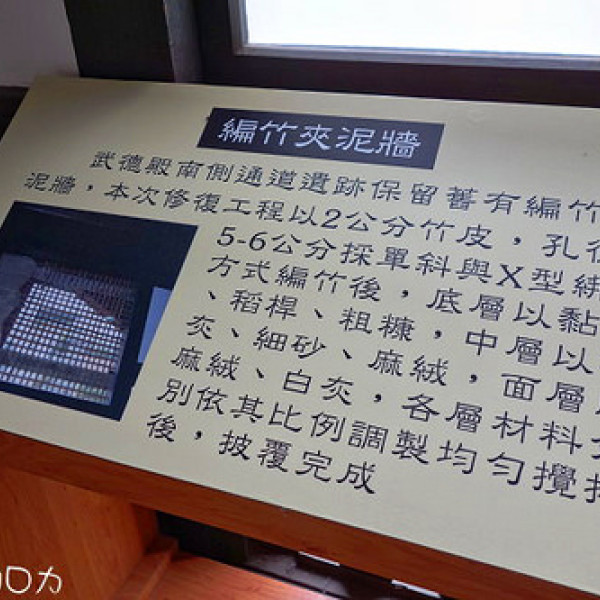 編竹夾泥牆
武德殿南側通道遺跡保留舊有編竹
泥牆，本次修復工程以2公分竹皮，孔
5-6公分採單斜與X型綁
方式編竹後，底層以黏
、稻桿、粗糠，中層以
灰、細砂、麻絨，面層
麻絨、白灰，各層材料
別依其比例調製均勻攪
後，披覆完成